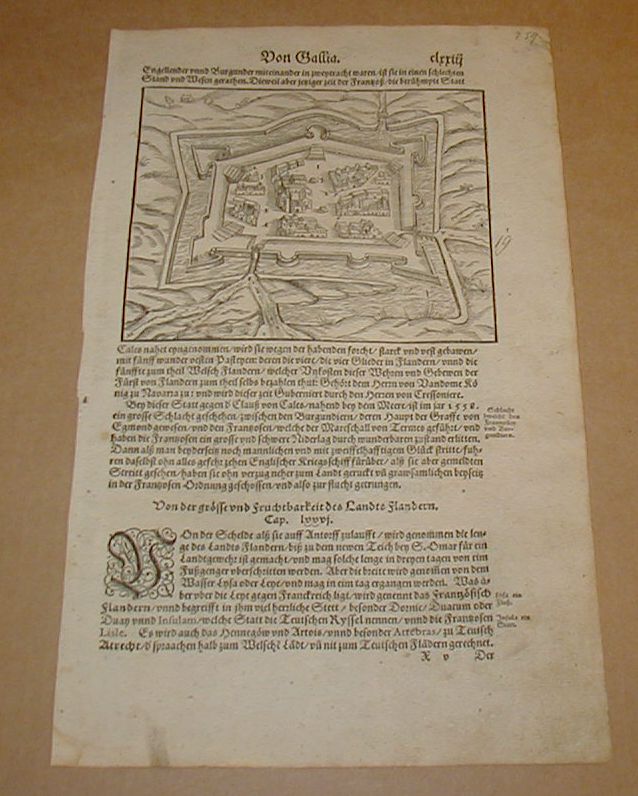 259.
Von Gallia. clxxiij
Engellender vnnd Burgunder miteinander in zweytracht waren / ist sie in einen schlechten
Stand vnd Wesen gerathen. Dieweil aber jetziger zeit der Frantzoß / die berühmpte Statt
19
Cales nahet eyngenommen / wird sie wegen der habenden forcht / starck vnd vest gebawen /
mit fünff wunder vesten Pasteyen: deren die viere / die vier Glieder in Flandern / vnnd die
fünffte zum theil Welsch Flandern / welcher Vnkosten dieser Wehren vnd Gebewen der
Fürst von Flandern zum theil selbs bezahlen thut: Gehört dem Herrn von Vandome Kö
nig zu Nauarra zu: vnd wird dieser zeit Guberniert durch den Herren von Cressoniere.
Bey dieser Statt gegen d' Clauß von Cales / nahend bey dem Meer / ist im jar 1558.
ein grosse Schlacht geschehen / zwischen den Burgundiern / deren Haupt der Graffe von
Egmond gewesen / vnd den Frantzosen / welche der Mareschall von Termes geführt / vnd
haben die Frantzosen ein grosse vnd schwere Niderlag durch wunderbaren zustand erlitten.
Schlacht
zwischt den
Frantzosen
vnd Bur-
gundiern.
Dann alß man beyderseits noch mannlichen vnd mit zweiffelhafftigem Glück stritte / fuh-
ren daselbst ohn alles gefehr zehen Englischer Kriegsschiff fürüber / alß sie aber gemeldten
Streitt gesehen / haben sie ohn verzug neher zum Landt geruckt vñ grawsamlichen beyseitz
in der Frantzosen Ordnung geschossen / vnd also zur flucht getrungen.
Von der grösse vnd Fruchtbarkeit des Landts Flandern.
Cap. lxxvj.
VOn der Schelde alß sie auff Antorff zulaufft / wird genommen die len-
ge des Landts Flandern / biß zu dem newen Teich bey S. Omar für ein
Landtgewehr ist gemacht / vnd mag solche lenge in dreyen tagen von eim
Fußgenger vberschritten werden. Aber die breite wird genom̃en von dem
Wasser Lysa oder Leye / vnd mag in eim tag ergangen werden. Was a-
ber vber die Leye gegen Franckreich ligt / wird genennt das Frantzösisch
Lysa ein
Fluß.
Flandern / vnnd begreifft in jhm viel herrliche Stett / besonder Dornic / Duacum oder
Duay vnnd Insulam / welche Statt die Teutschen Ryssel nennen / vnnd die Frantzosen
Insula ein
Statt.
Lisle. Es wird auch das Hennegöw vnd Artois / vnnd besonder Attrebas / zu Teutsch
Atrecht / d' spraachen halb zum Welschẽ Lãdt / vñ nit zum Teutschen Flãdern gerechnet.
X v Der